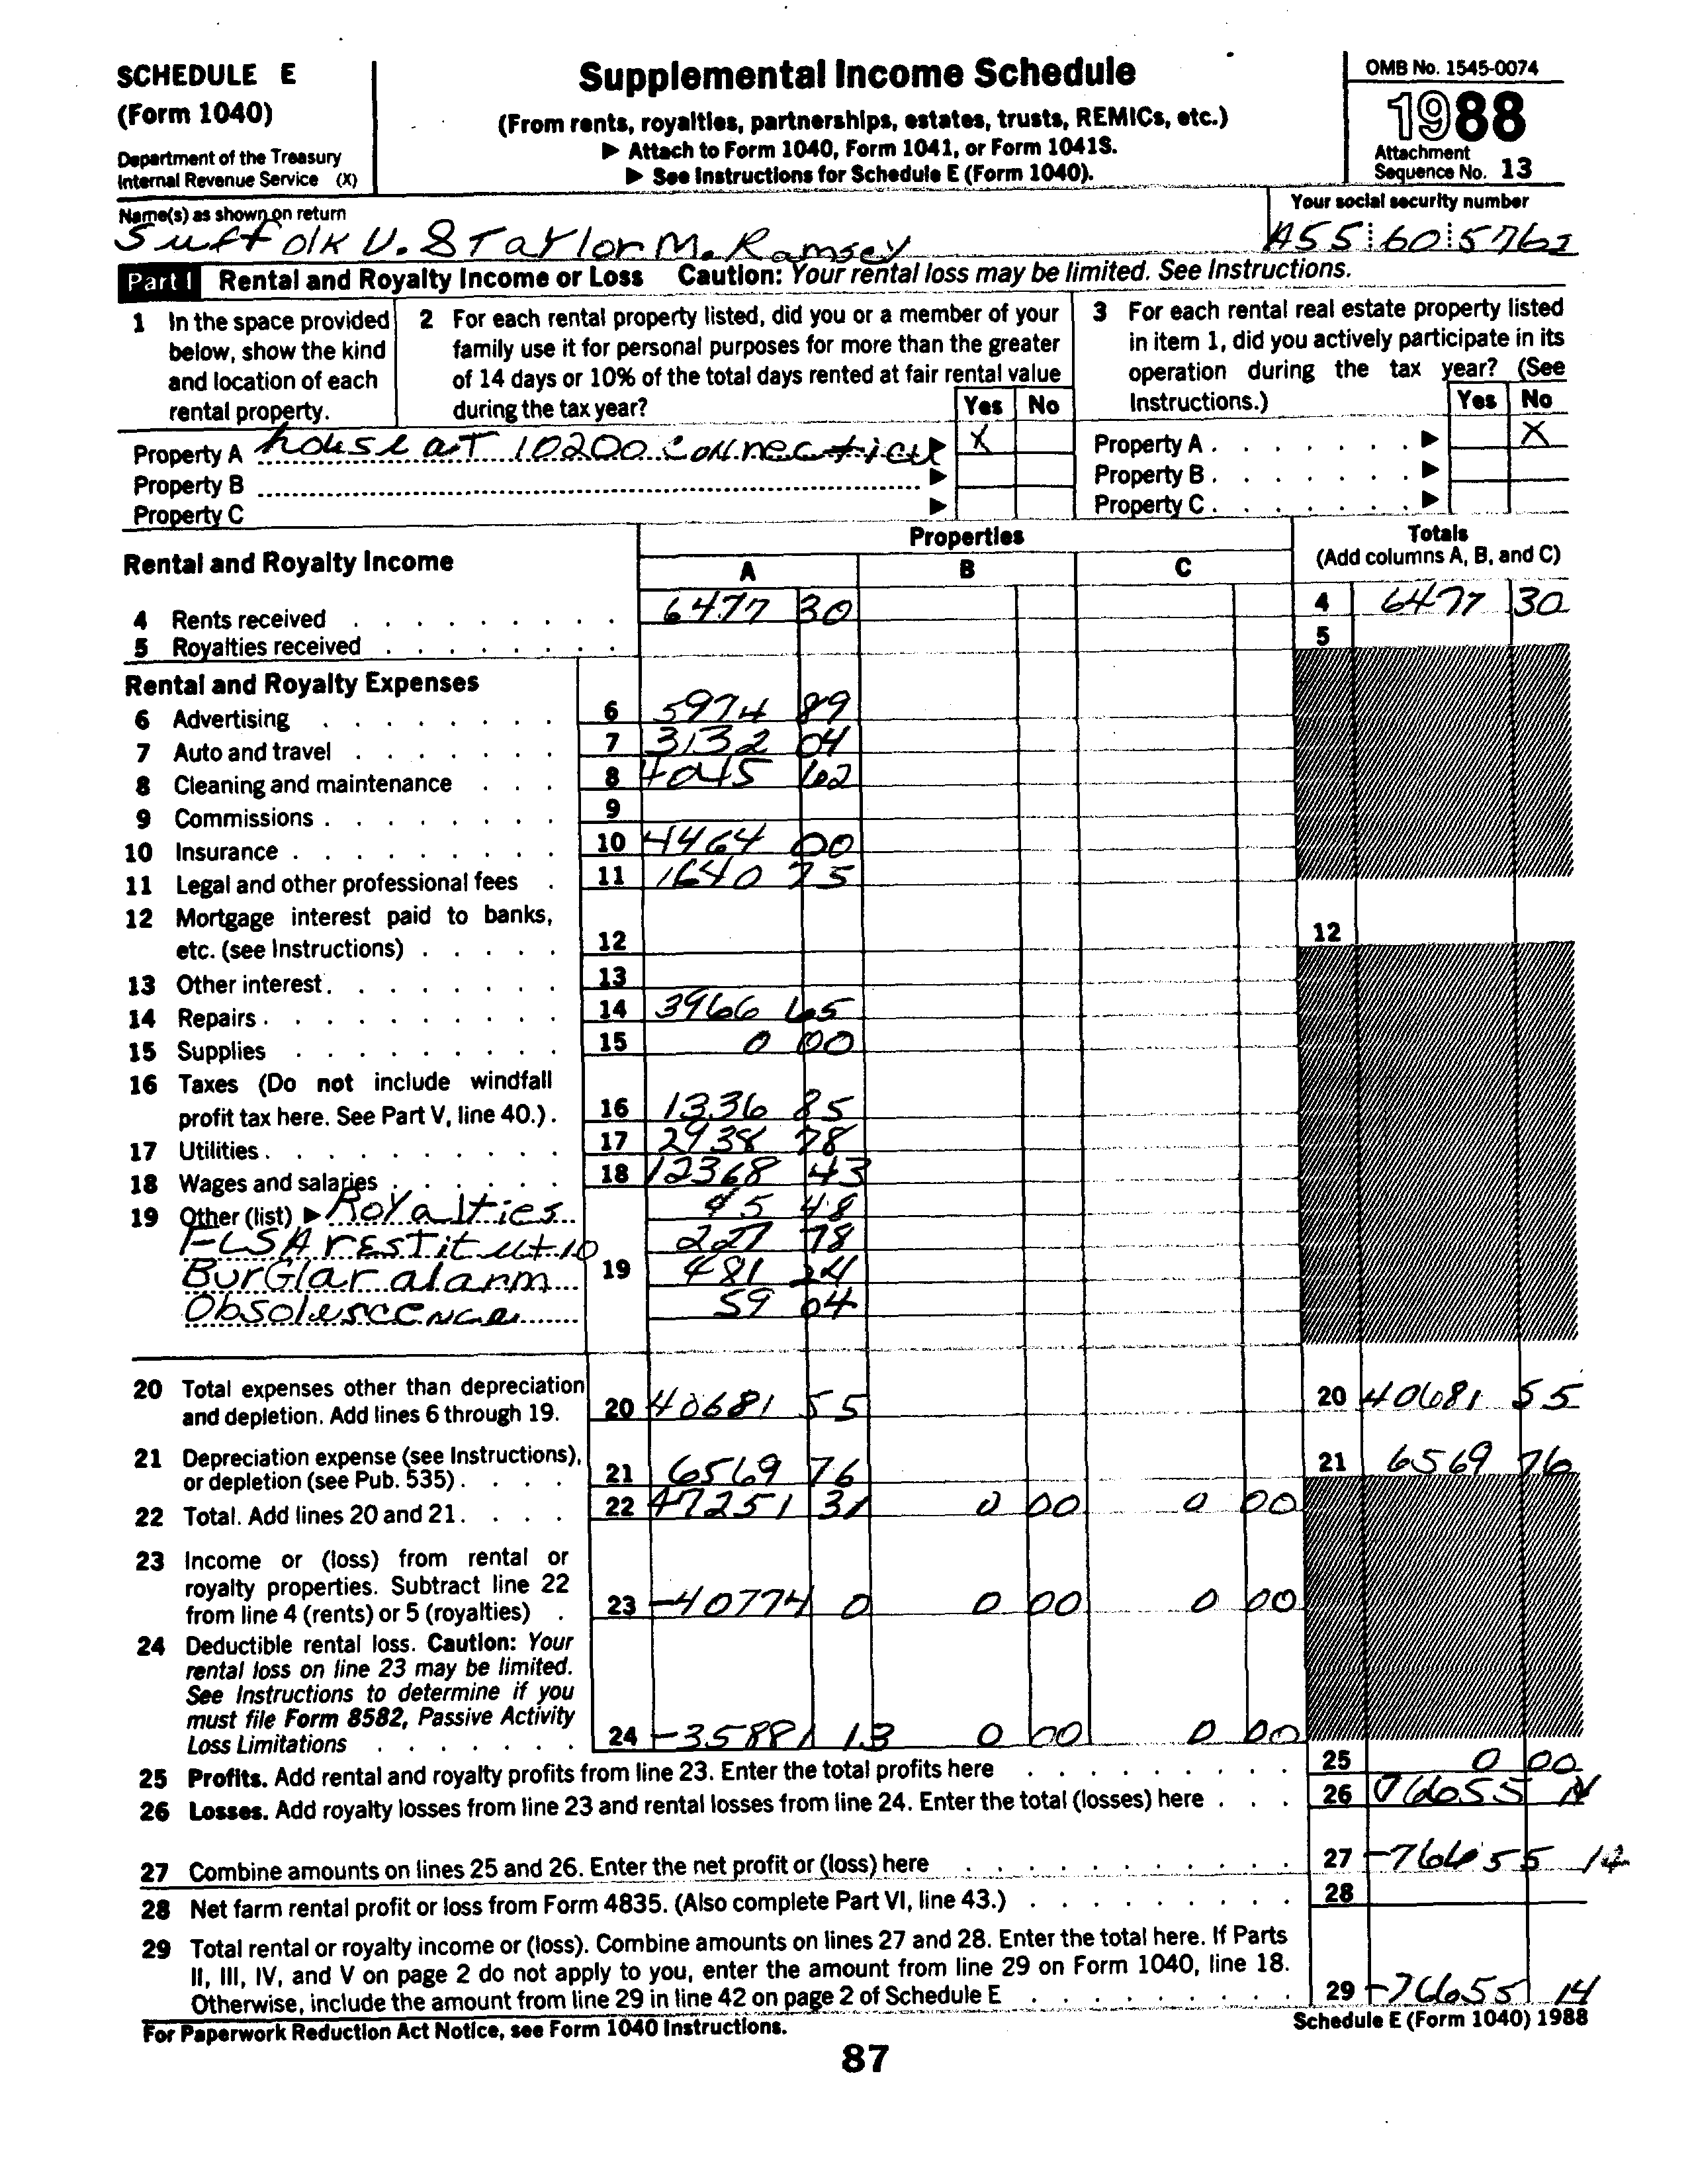 SCHEDULE E
(Form 1040)
Department of the Treasury
Internal Revenue Service (X)
Supplemental Income Schedule
(From rents, royalties, partnerships, estates, trusts, REMICs, etc.)
▶ Attach to Form 1040, Form 1041, or Form 1041S.
▶ See Instructions for Schedule E (Form 1040).
OMB No. 1545-0074
1988
Attachment
Sequence No. 13
Name(s) as shown on return
Suffolk U. & Taylor M. Ramsey
Your social security number
A55 60 5762
Part I Rental and Royalty Income or Loss Caution: Your rental loss may be limited. See Instructions.
1 In the space provided below, show the kind and location of each rental property.
2 For each rental property listed, did you or a member of your family use it for personal purposes for more than the greater of 14 days or 10% of the total days rented at fair rental value during the tax year?
Yes No
3 For each rental real estate property listed in item 1, did you actively participate in its operation during the tax year? (See Instructions.)
Yes No
Property A house at 10200 connecticu ▶ X
Property B ▶
Property C ▶
Property A ▶ X
Property B ▶
Property C ▶
Rental and Royalty Income
Properties
A B C
Totals
(Add columns A, B, and C)
4 Rents received 6477 30 4 6477 30
5 Royalties received 5
Rental and Royalty Expenses
6 Advertising 6 5974 89
7 Auto and travel 7 3132 04
8 Cleaning and maintenance 8 4045 62
9 Commissions 9
10 Insurance 10 4464 00
11 Legal and other professional fees 11 1640 75
12 Mortgage interest paid to banks, etc. (see Instructions) 12 12
13 Other interest 13
14 Repairs 14 3966 65
15 Supplies 15 0 00
16 Taxes (Do not include windfall profit tax here. See Part V, line 40.) 16 1336 85
17 Utilities 17 2938 78
18 Wages and salaries 18 12368 43
19 Other (list) ▶ Royalties 45 48
FLSA restitutio 227 78
Burglar alarm 19 481 24
Obsolescence 59 04
20 Total expenses other than depreciation and depletion. Add lines 6 through 19. 20 40681 55 20 40681 55
21 Depreciation expense (see Instructions), or depletion (see Pub. 535) 21 6569 76 21 6569 76
22 Total. Add lines 20 and 21 22 47251 31 0 00 0 00
23 Income or (loss) from rental or royalty properties. Subtract line 22 from line 4 (rents) or 5 (royalties) 23 -40774 0 0 00 0 00
24 Deductible rental loss. Caution: Your rental loss on line 23 may be limited. See Instructions to determine if you must file Form 8582, Passive Activity Loss Limitations 24 -35881 13 0 00 0 00
25 Profits. Add rental and royalty profits from line 23. Enter the total profits here 25 0 00
26 Losses. Add royalty losses from line 23 and rental losses from line 24. Enter the total (losses) here 26 76655
27 Combine amounts on lines 25 and 26. Enter the net profit or (loss) here 27 -76655 14
28 Net farm rental profit or loss from Form 4835. (Also complete Part VI, line 43.) 28
29 Total rental or royalty income or (loss). Combine amounts on lines 27 and 28. Enter the total here. If Parts II, III, IV, and V on page 2 do not apply to you, enter the amount from line 29 on Form 1040, line 18. Otherwise, include the amount from line 29 in line 42 on page 2 of Schedule E 29 -76655 14
For Paperwork Reduction Act Notice, see Form 1040 Instructions.
Schedule E (Form 1040) 1988
87